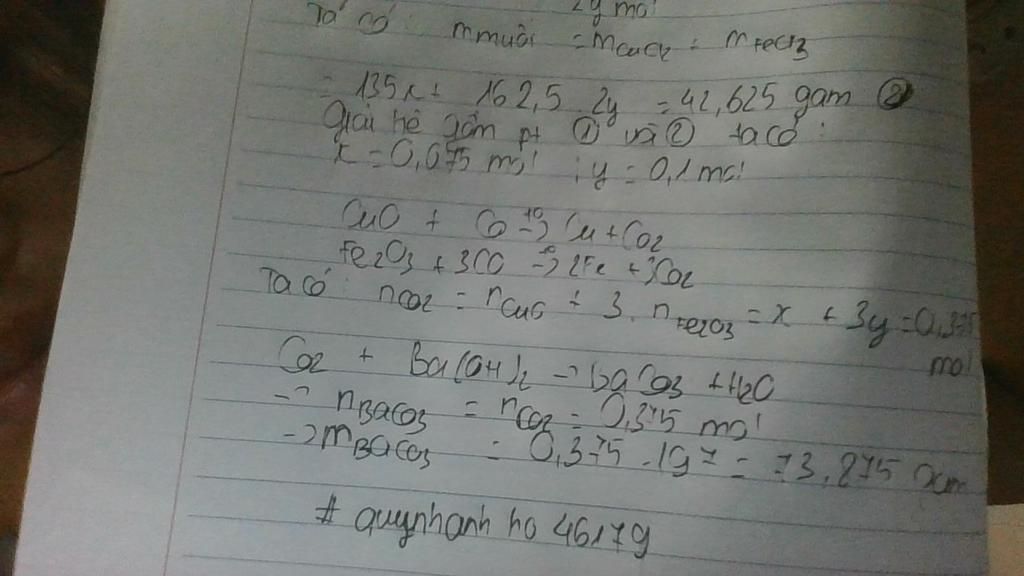 2y mol
Ta có: m muối = mCuCl2 + mFeCl3
= 135x + 162,5.2y = 42,625 gam ②
Giải hệ gồm pt ① và ② ta có:
x = 0,075 mol ; y = 0,1 mol
CuO + CO -to-> Cu + CO2
Fe2O3 + 3CO -to-> 2Fe + 3CO2
Ta có: nCO2 = nCuO + 3.nFe2O3 = x + 3y = 0,375
mol
CO2 + Ba(OH)2 -> BaCO3 + H2O
-> nBaCO3 = nCO2 = 0,375 mol
-> mBaCO3 = 0,375.197 = 73,875 gam
# quynhanhho46179